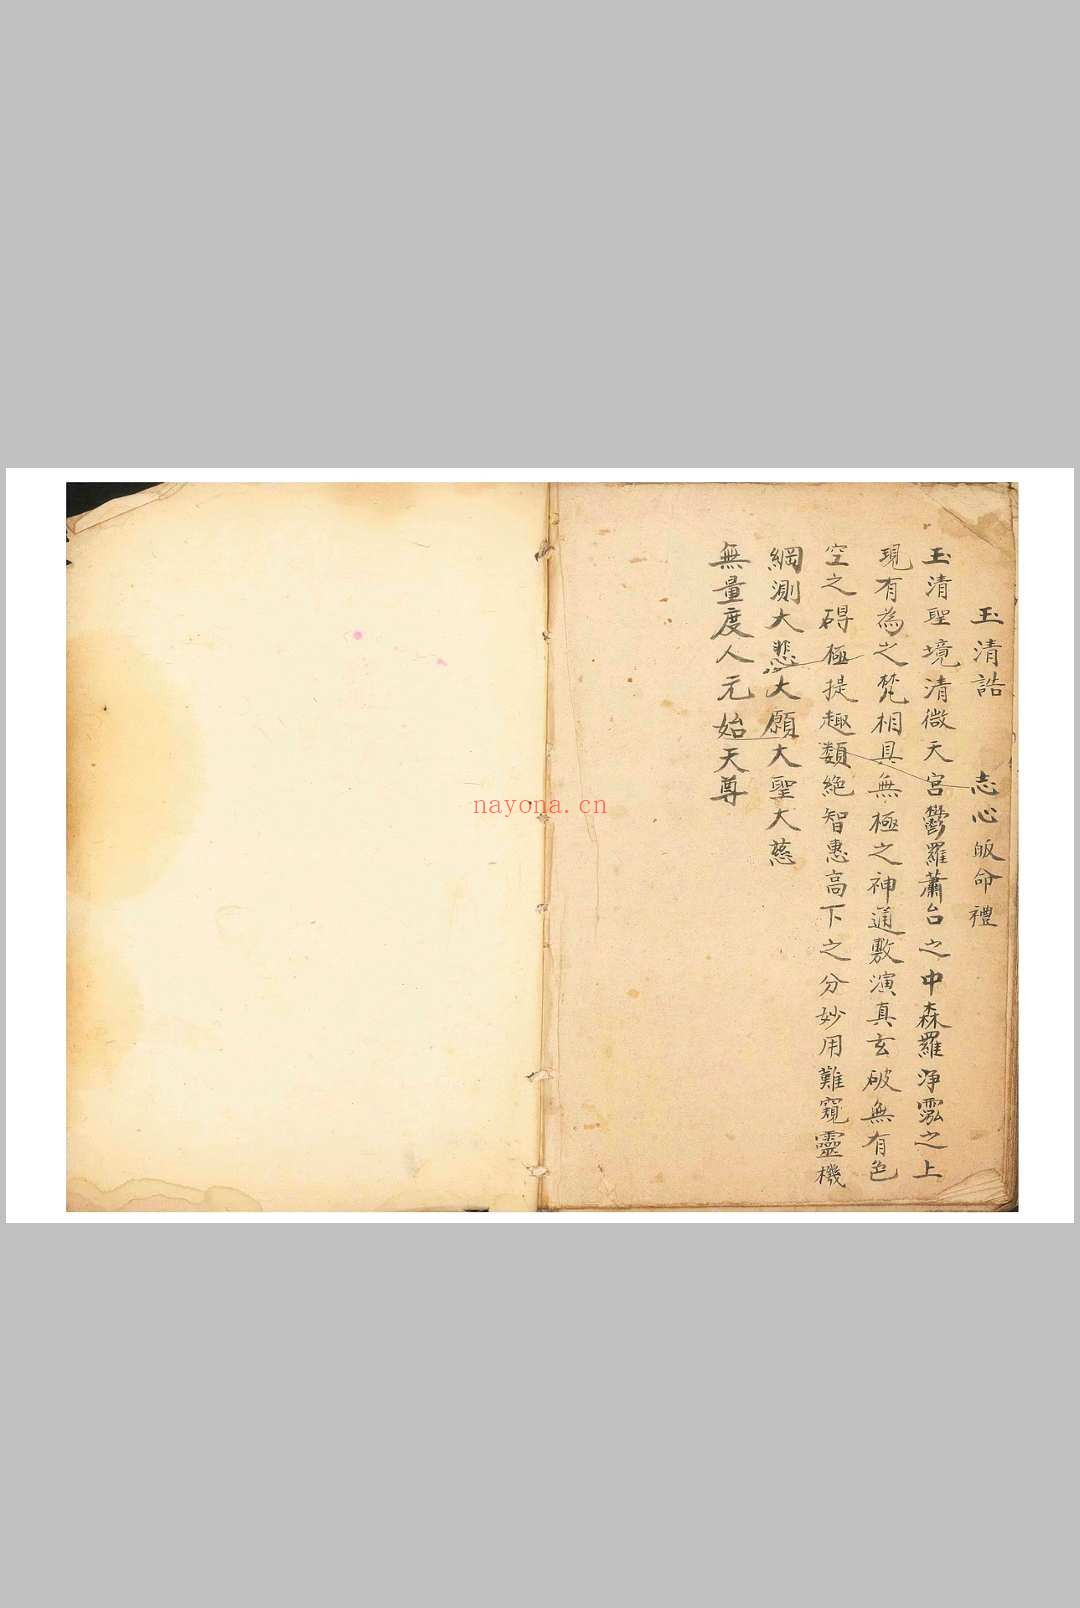 玉清誥 志心皈命禮
玉清聖境清微天宮鬱羅蕭台之中森羅淨霐之上
現有為之梵相具無極之神通敷演真玄破無有色
空之碍極提趣類絶智惠高下之分妙用難窺靈機
綱測大悲大願大聖大慈
無量度人元始天尊
nayona.cn